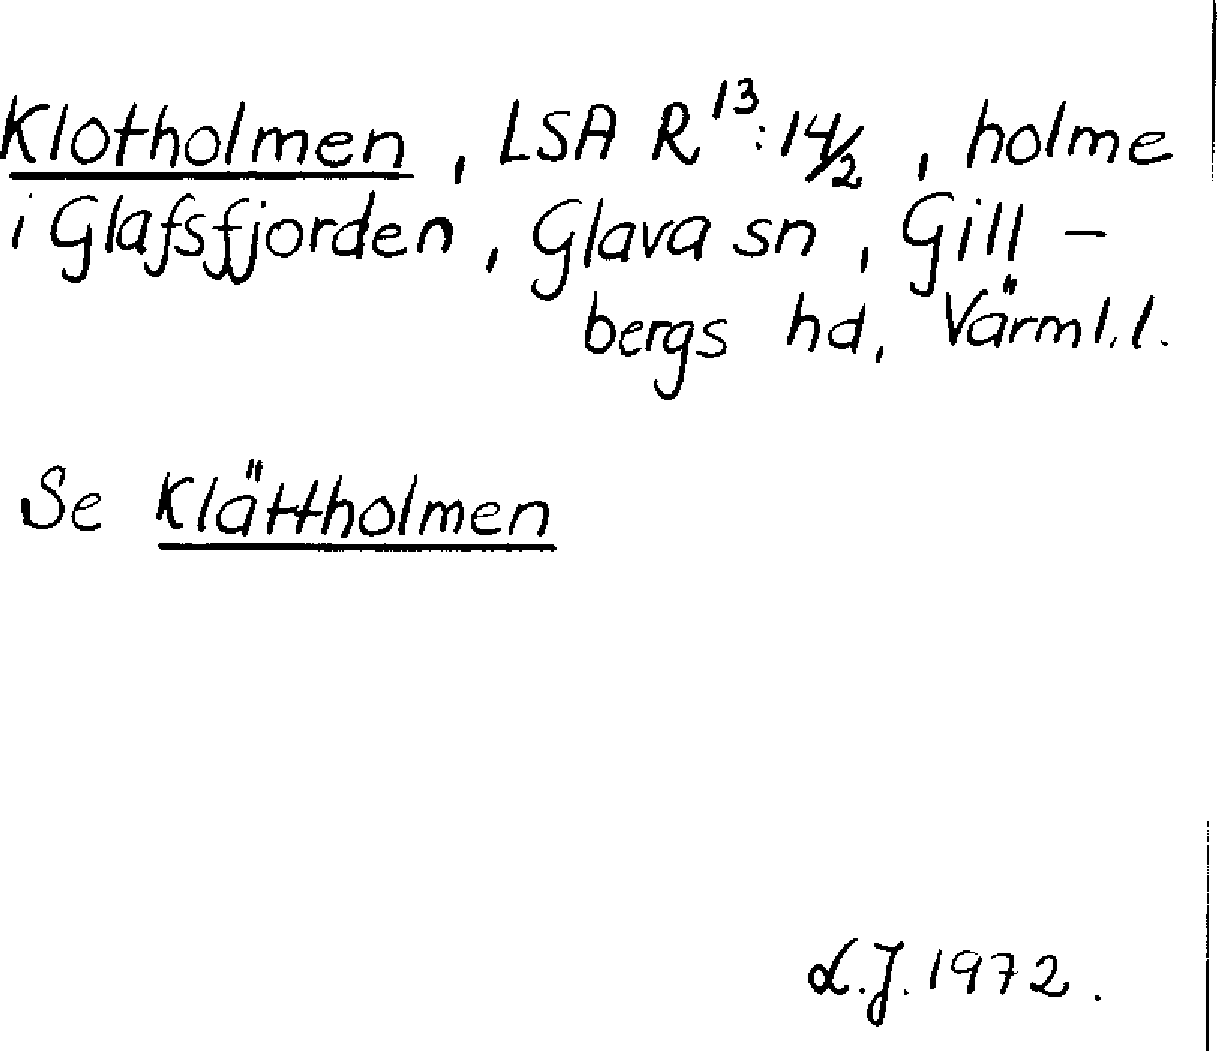 Klotholmen, LSA R¹³:14/2, holme
i Glafsfjorden, Glava sn, Gill-
bergs hd, Värml.l.
Se Klättholmen
L.J. 1972.